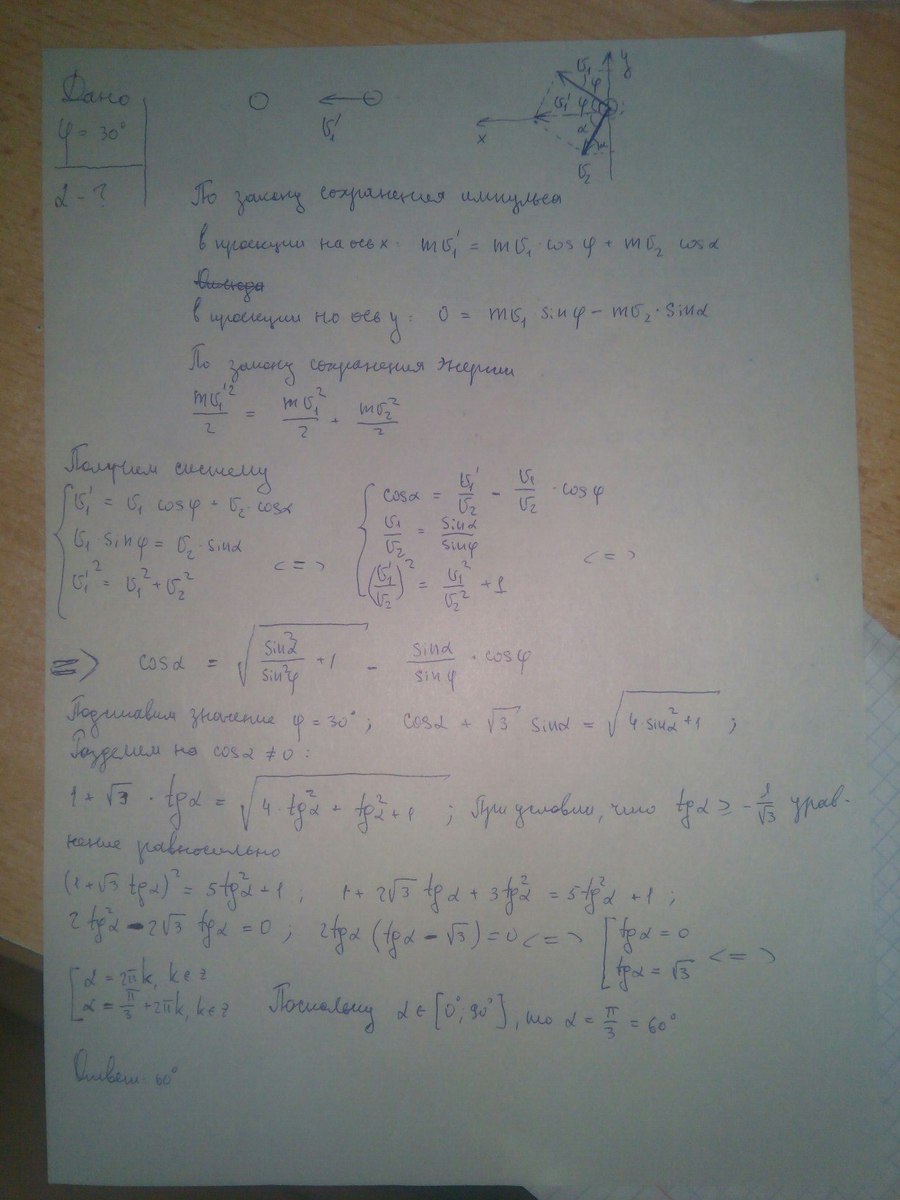 Дано
φ = 30°
α - ?
υ₁'
υ₁
y
φ
υ₁' φ
α
x
α
υ₂
По закону сохранения импульса
в проекции на ось x: mυ₁' = mυ₁ · cos φ + mυ₂ cos α
Отсюда
в проекции на ось y: 0 = mυ₁ sin φ - mυ₂ · sin α
По закону сохранения энергии
mυ₁'²/2 = mυ₁²/2 + mυ₂²/2
Получим систему
{ υ₁' = υ₁ cos φ + υ₂ · cos α
υ₁ sin φ = υ₂ · sin α
υ₁'² = υ₁² + υ₂² <=>
{ cos α = υ₁'/υ₂ - υ₁/υ₂ · cos φ
υ₁/υ₂ = sin α/sin φ <=>
(υ₁'/υ₂)² = υ₁²/υ₂² + 1
=> cos α = √(sin²α/sin²φ + 1) - sin α/sin φ · cos φ
Подставим значение φ = 30°; cos α + √3 sin α = √(4 · sin²α + 1) ;
Разделим на cos α ≠ 0 :
1 + √3 · tg α = √(4 · tg²α + tg²α + 1) ; При условии, что tg α ≥ -1/√3 урав-
нение равносильно
(1 + √3 tg α)² = 5 tg²α + 1 ; 1 + 2√3 tg α + 3 tg²α = 5 tg²α + 1 ;
2 tg²α - 2√3 tg α = 0 ; 2 tg α (tg α - √3) = 0 <=> [ tg α = 0
tg α = √3 <=>
[ α = 2πk, k∈z
α = π/3 + 2πk, k∈z Поскольку α ∈ [0°; 90°], то α = π/3 = 60°
Ответ: 60°